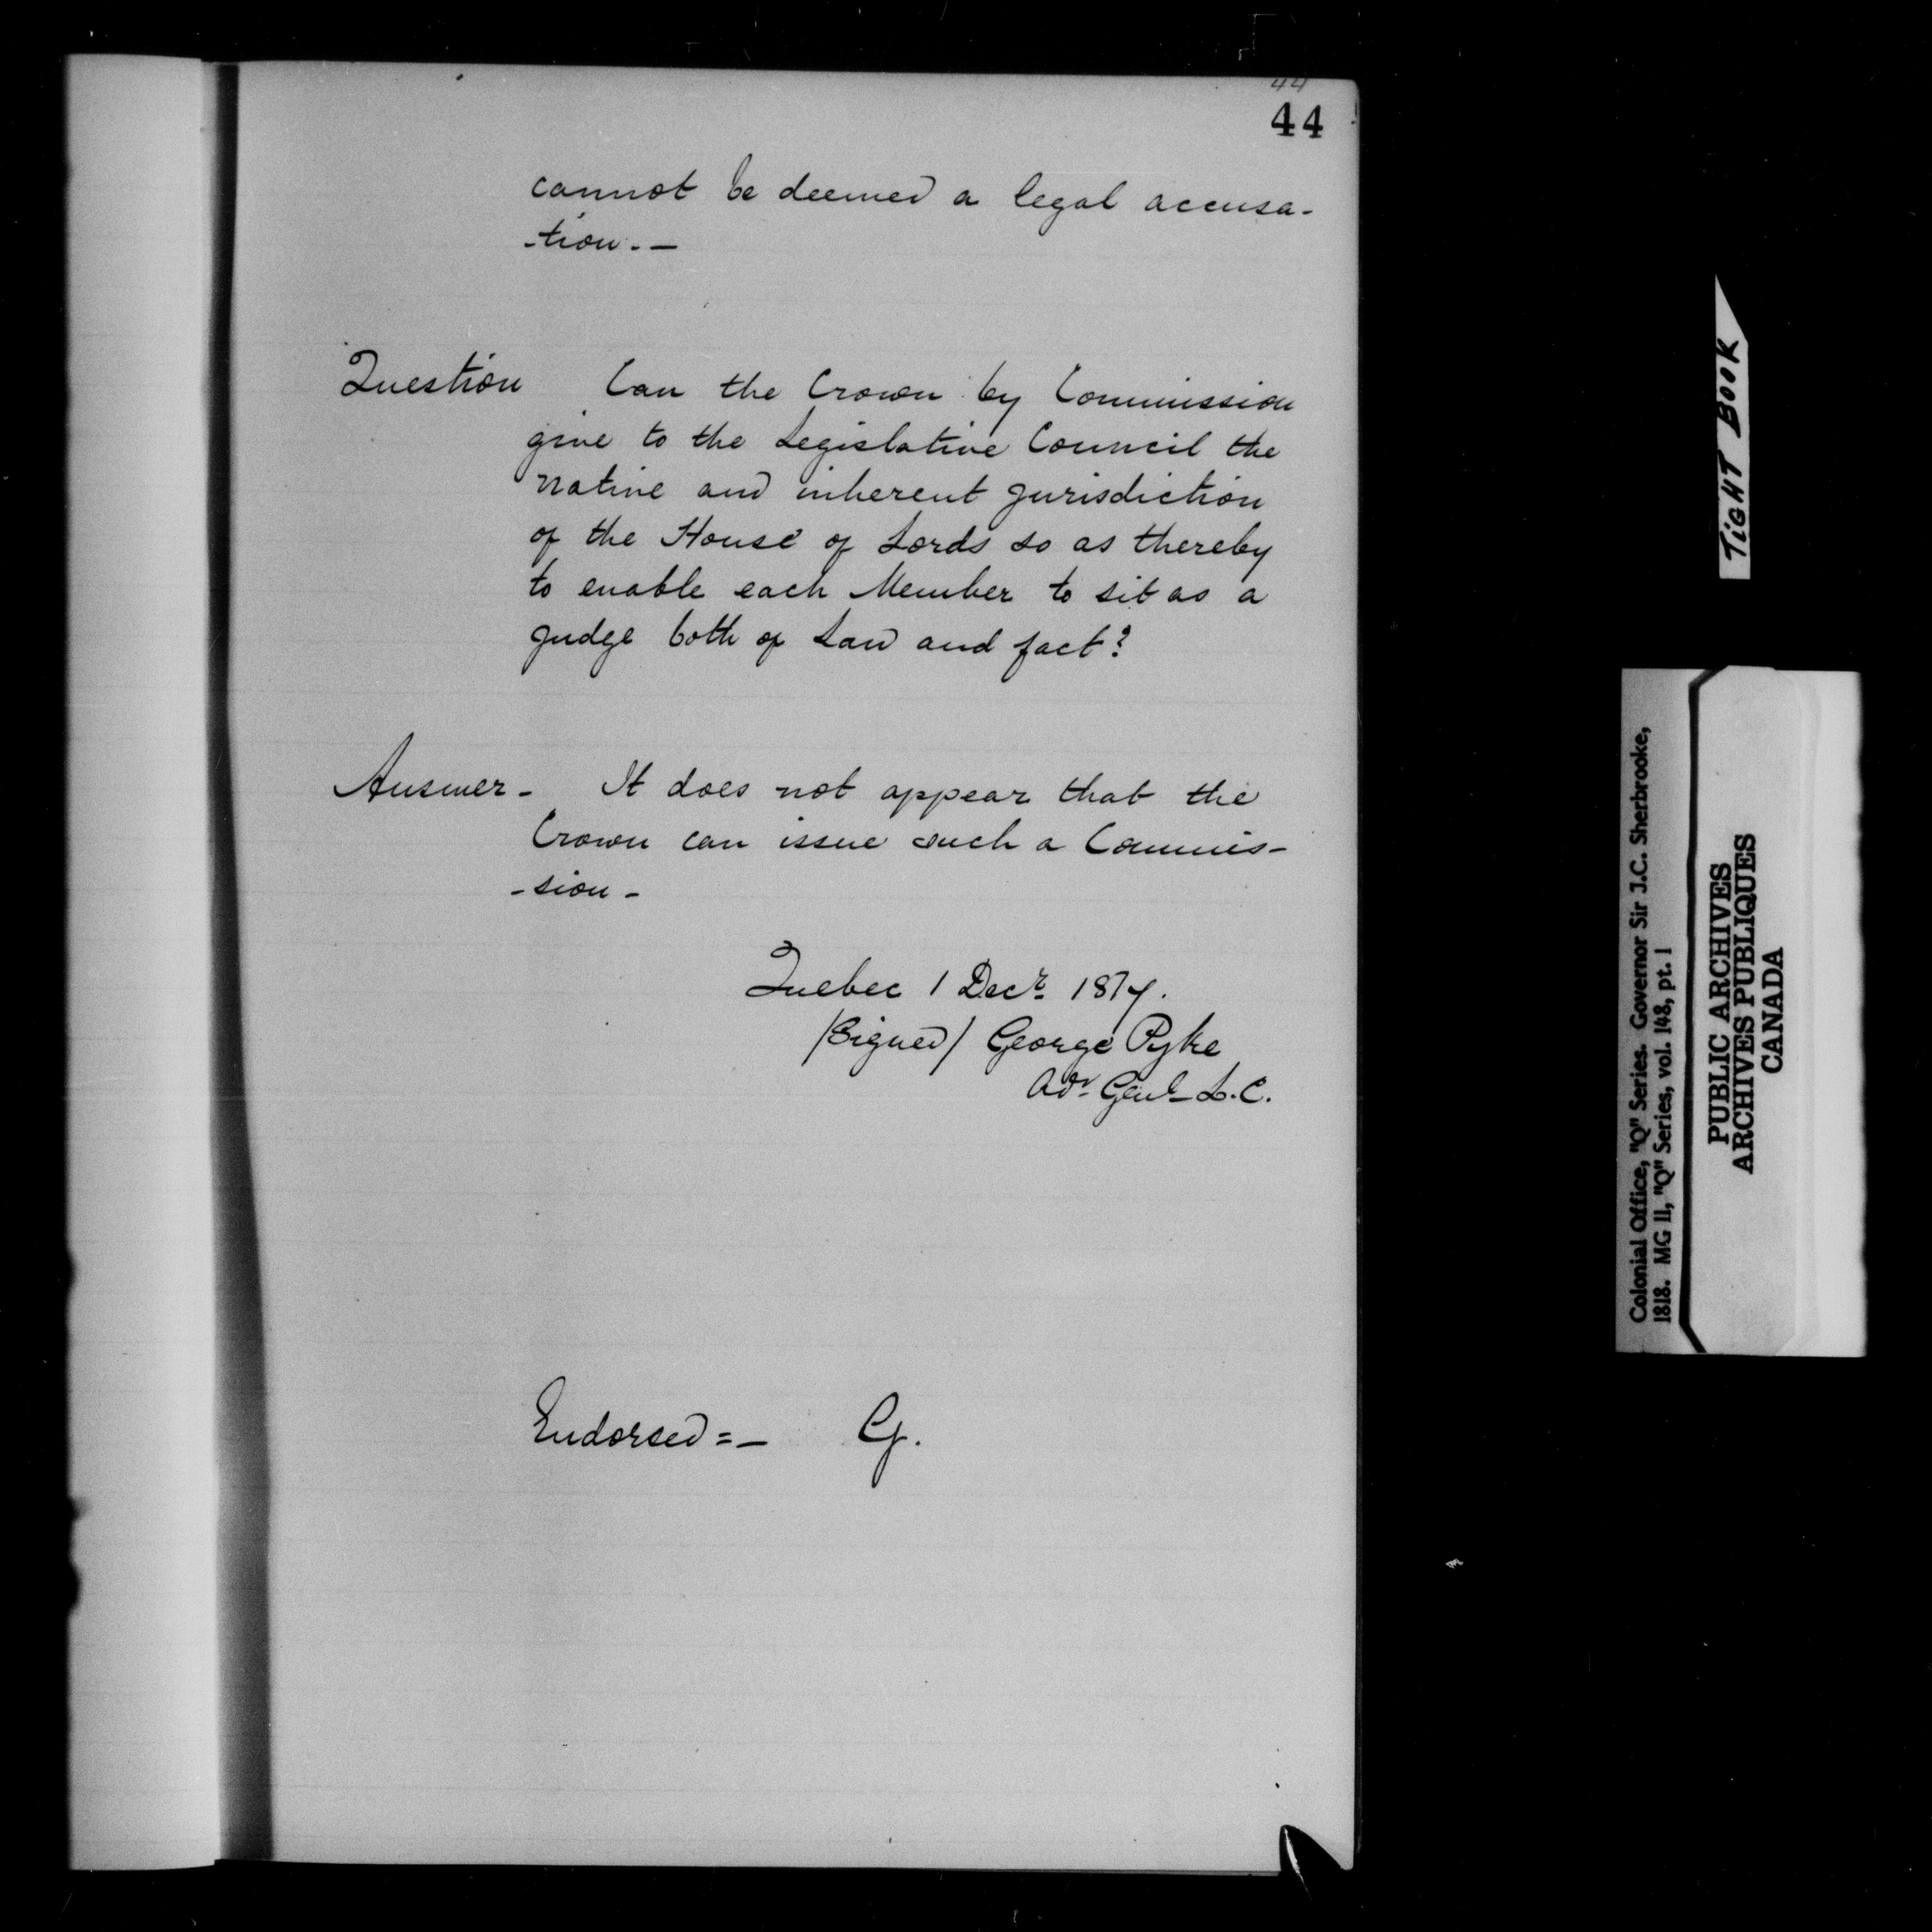 44
44
cannot be deemed a legal accusa-
-tion.—
Question Can the Crown by Commission
give to the Legislative Council the
native and inherent jurisdiction
of the House of Lords so as thereby
to enable each Member to sit as a
judge both of Law and fact?
Answer- It does not appear that the
Crown can issue such a Commis-
-sion-
Quebec 1 Decr 1817.
/Signed/ George Pyke
Adv Genl L.C.
Endorsed=- G.
TIGHT BOOK
Colonial Office, "Q" Series. Governor Sir J.C. Sherbrooke,
1818. MG 11, "Q" Series, vol. 148, pt. 1
PUBLIC ARCHIVES
ARCHIVES PUBLIQUES
CANADA